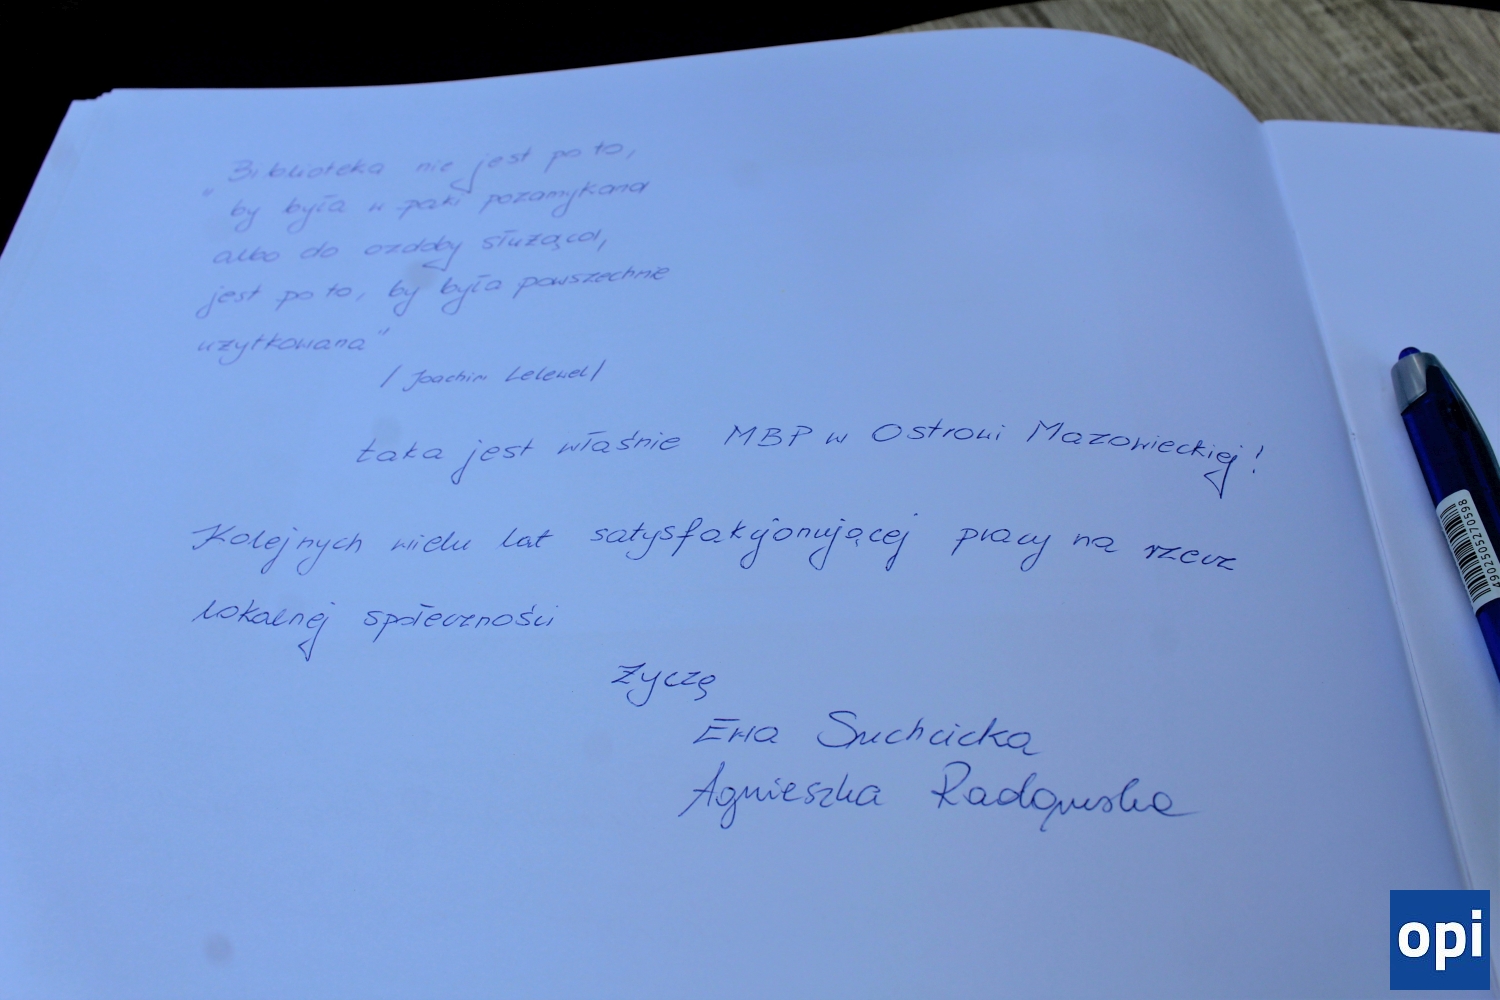 Biblioteka nie jest po to,
"by była w paki pozamykana
albo do ozdoby służąca,
jest po to, by była powszechnie
użytkowana"
/Joachim Lelewel/
taka jest właśnie MBP w Ostrowi Mazowieckiej!
Kolejnych wielu lat satysfakcjonującej pracy na rzecz
lokalnej społeczności
Życzę
Ewa Suchcicka
Agnieszka
4902505270598
opi